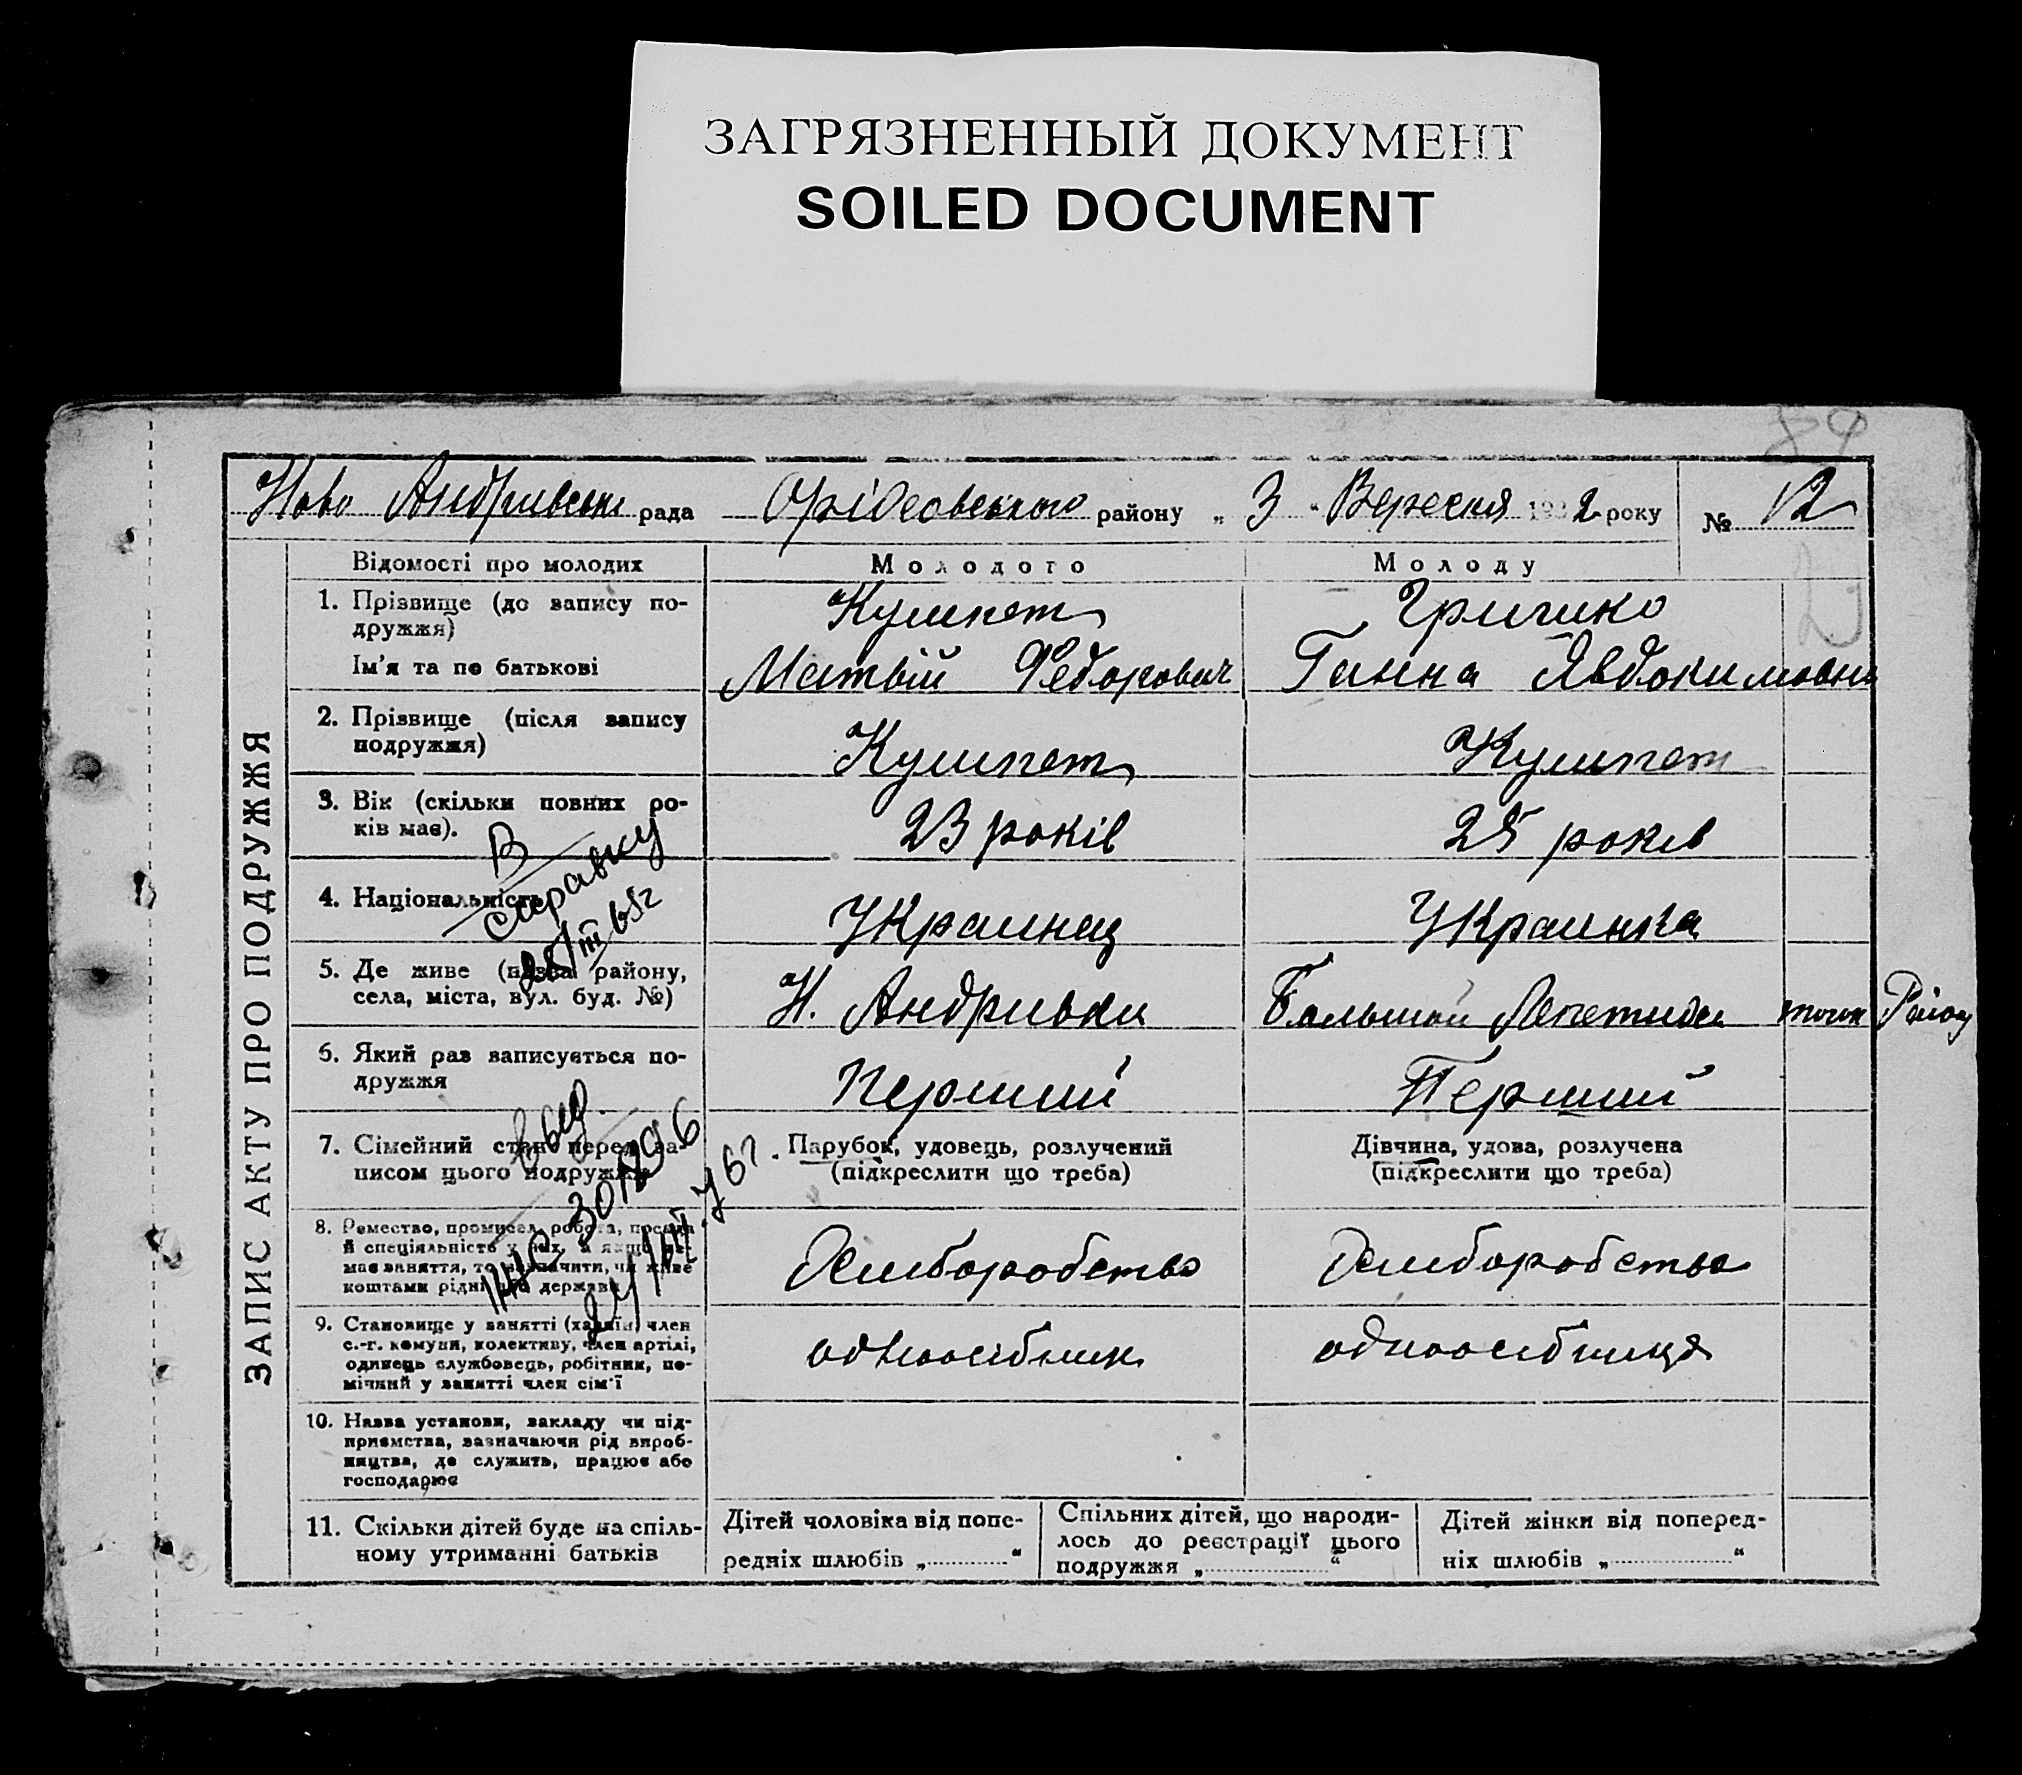 ЗАГРЯЗНЕННЫЙ ДОКУМЕНТ
SOILED DOCUMENT
ЗАПИС АКТУ ПРО ПОДРУЖЖЯ
Ново Андривська рада Оріховського району „ 3 “ Вересня 1932 року № 12
Відомості про молодих Молодого Молоду
1. Прізвище (до запису по-
дружжя) Кушпет
Ім’я та по батькові Матвій Федорович Ганна Явдокимовна
2. Прізвище (після запису
подружжя) Кушпет Кушпет
3. Вік (скільки повних ро-
ків має). 23 років 25 років
В
справку
4. Національність Украинец Украинка
5. Де живе (назва району,
села, міста, вул. буд. №) Н. Андривки
6. Який раз записується по-
дружжя Перший Перший
7. Сімейний стан перед за-
писом цього подружжя
Парубок, удовець, розлучений
(підкреслити що треба)
Дівчина, удова, розлучена
(підкреслити що треба)
8. Ремество, промисел, робота, посада
й спеціяльність у них, а якщо не
має заняття, то зазначити, чи живе
коштами рідні чи держави
9. Становище у занятті (хазяїн, член
с.-г. комуни, колективу, член артілі,
одинець службовець, робітник, по-
мічний у занятті член сім’ї одноосібник одноосибниця
10. Назва установи, закладу чи під-
приємства, зазначаючи рід вироб-
ництва, де служить, працює або
господарює
11. Скільки дітей буде на спіль-
ному утриманні батьків
Дітей чоловіка від попе-
редніх шлюбів „ “
Спільних дітей, що народи-
лось до реєстрації цього
подружжя „ “
Дітей жінки від поперед-
ніх шлюбів „ “